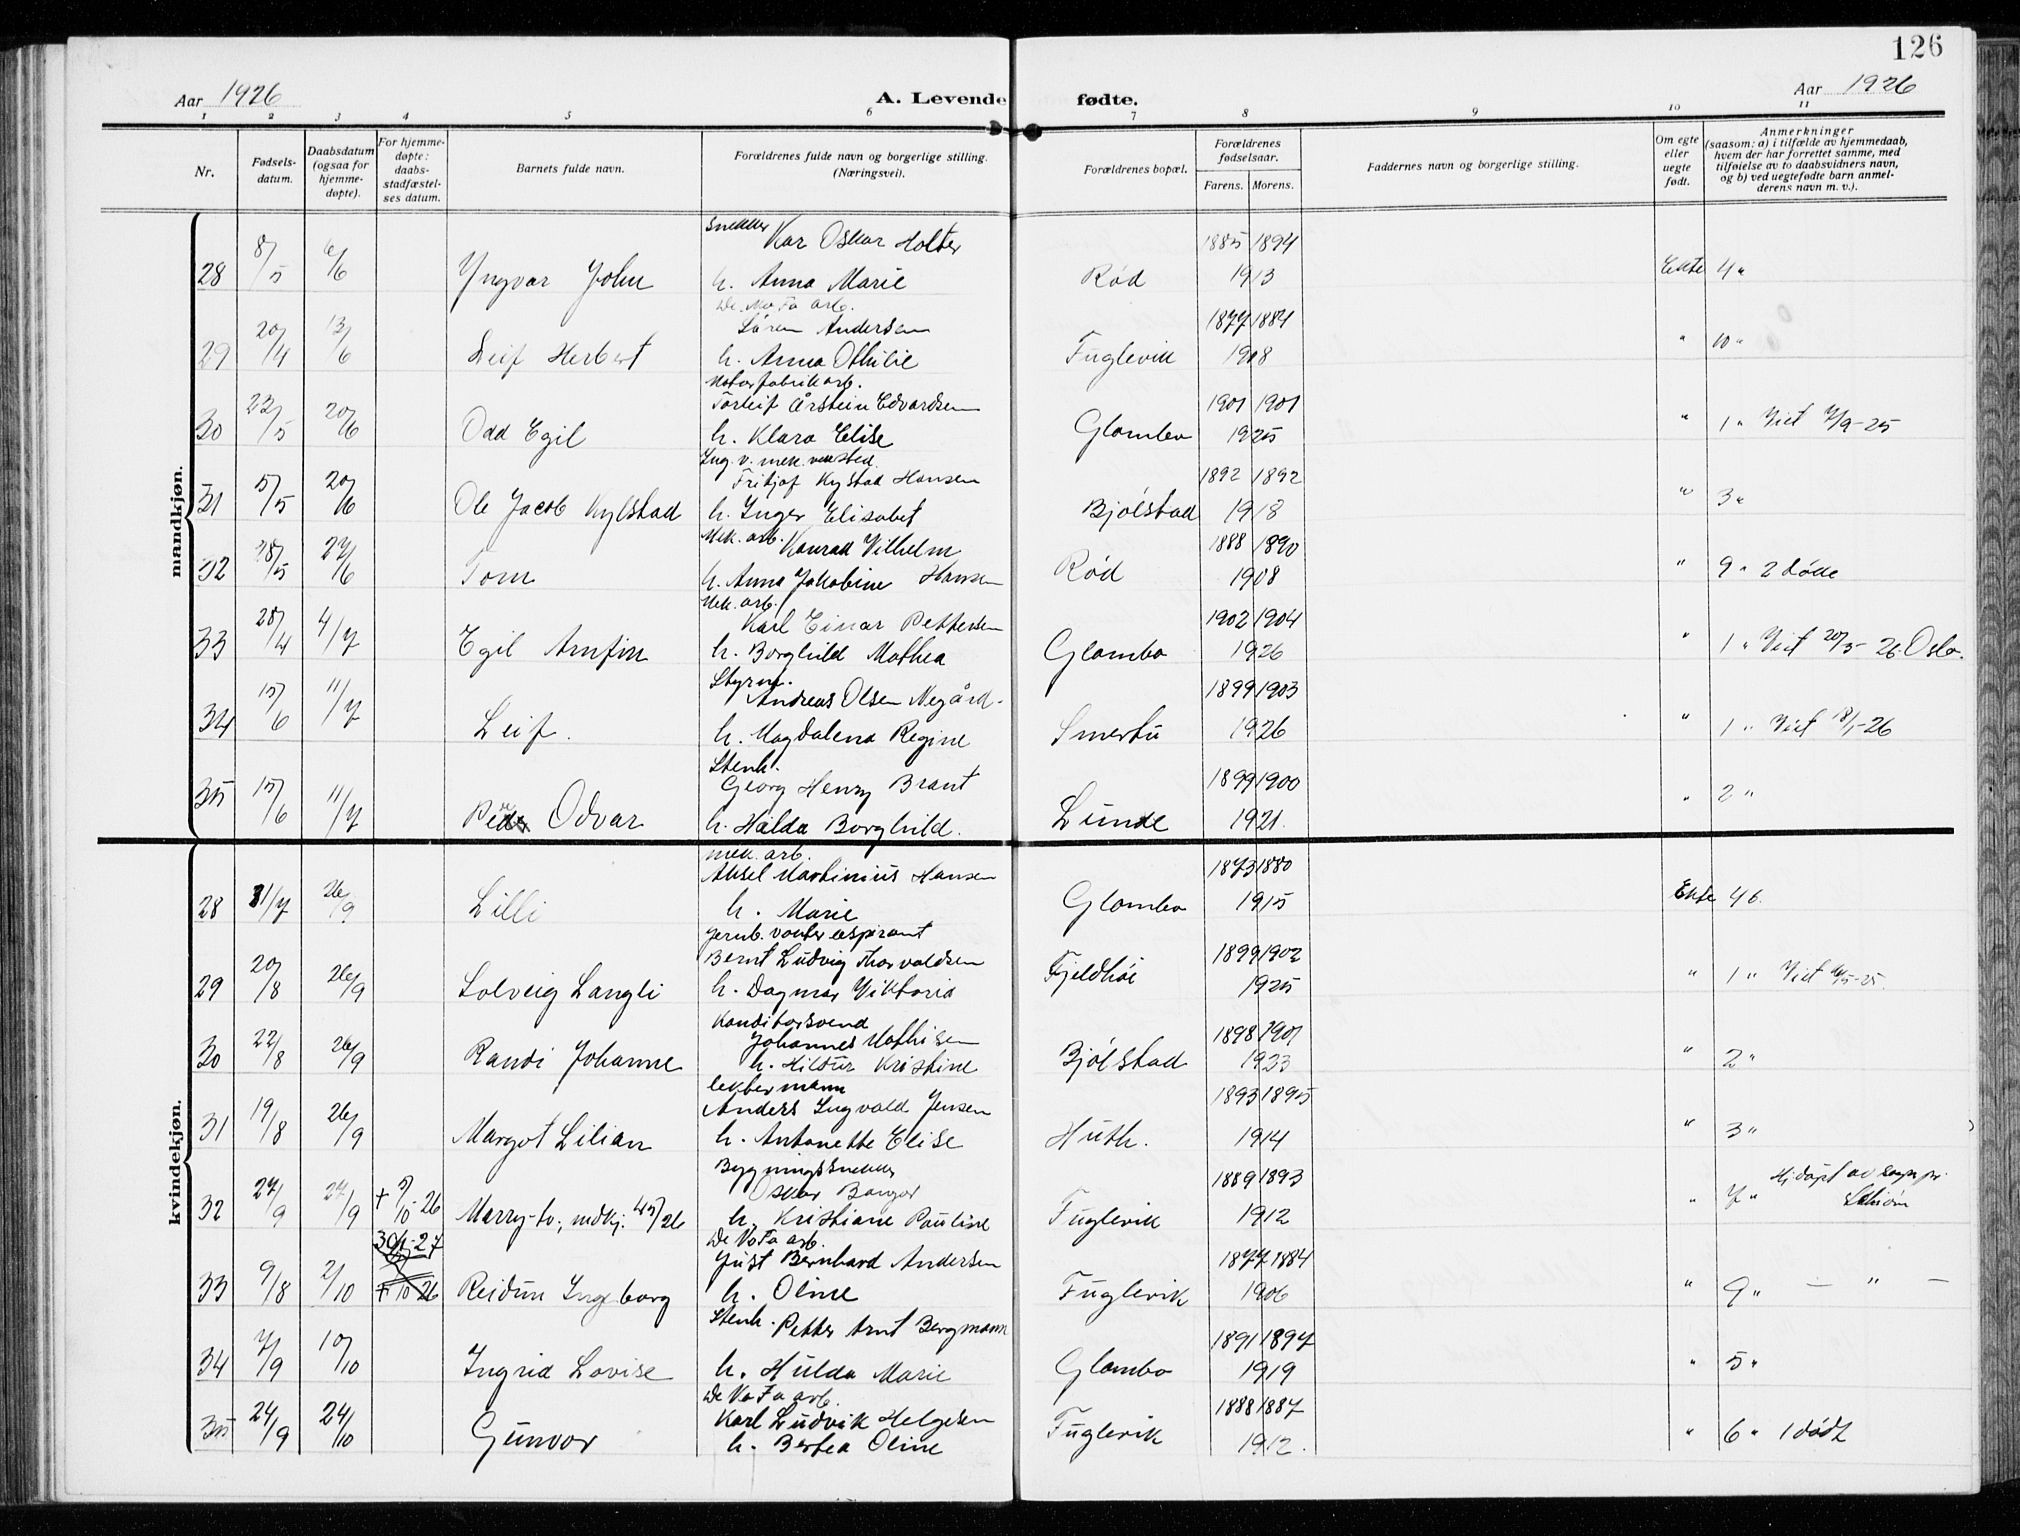 126
Aar 1926
A. Levende fødte.
Aar 1926
1 2 3 4 5 6 7 8 9 10 11
Nr.
Fødsels-
datum.
Daabsdatum
(ogsaa for
hjemme-
døpte).
For hjemme-
døpte:
daabs-
stadfæstel-
ses datum.
Barnets fulde navn.
Forældrenes fulde navn og borgerlige stilling.
(Næringsvei).
Forældrenes bopæl.
Forældrenes
fødselsaar.
Farens. Morens.
Faddernes navn og borgerlige stilling.
Om egte
eller
uegte
født.
Anmerkninger
(saasom: a) i tilfælde av hjemmedaab,
hvem der har forrettet samme, med
tilføielse av to daabsvidners navn,
og b) ved uegtefødte barn anmel-
derens navn m. v.).
mandkjøn.
Snekker Kar Oskar Holter 1885 1894
28 8/5 6/6 Yngvar John h. Anna Marie Rød 1913 Ekte 4 "
De No Fa arb.
Søren Andersen 1877 1884
29 20/4 13/6 Leif Herbert h. Anna Othilie Fuglevik 1908 " 10 "
Motorfabrikarb.
Torleif Årstein Edvardsen 1901 1901
30 23/5 20/6 Odd Egil h. Klara Elise Glombo 1925 " 1 " Viet /9-25
Ing. v. mek. verksted.
Fritjof Kystad Hansen 1892 1892
31 5/5 20/6 Ole Jacob Kylstad h. Inger Elisabet Bjølstad 1918 " 3 "
Mek. arb. Konrad Vilhelm 1888 1890
32 18/5 27/6 Tom h. Anna Jakobine Hansen Rød 1908 " 9 " 2 døde
Mek. arb.
Karl Einar Pettersen 1902 1904
33 28/4 4/7 Egil Arnfin h. Borghild Mathea Glombo 1926 " 1 " Viet 20/3-26. Oslo.
Styrm.
Andreas Olsen Negård 1899 1903
34 15/6 11/7 Leif. h. Magdalena Regine Smertu 1926 " 1 " Viet 18/1-26
Stenh.
Georg Henry Brant 1899 1900
35 15/6 11/7 Odvar h. Hilda Borghild. Lunde 1921. " 2 "
kvindekjøn.
mek. arb.
Aksel Martinius Hansen 1873 1880
28 31/7 26/9 Lilli h. Marie Glombo 1915 Ekte 4 b.
jernb. vokter aspirant
Bernt Ludvig Thorvaldsen 1899 1902
29 20/8 26/9 Solveig Langli h. Dagmar Viktoria Fjeldhøi 1925 " 1 " Viet /5-25.
Konditorsvend
Johannes Mathisen 1898 1901
30 22/8 26/9 Randi Johanne h. Hildur Kristine Bjølstad 1923 " 2 "
lektermann
Anders Ingvald Jensen 1893 1895
31 19/8 26/9 Margot Lilian h. Antonette Elise Huth. 1914 " 3 "
Bygningssnekker
Oskar Bangor 1889 1893
32 27/9 27/9 + 5/10-26 Marry-to, h. Kristiane Pauline Fuglevik 1912 " 7 " Hj. døpt av
De No Fa arb.
Just Bernhard Andersen 1877 1884
33 9/8 2/10 Reidun Ingeborg h. Oline Fuglevik 1906 " 9 " — " —
Stenh. Petter Arnt Bergmann 1891 1897
34 7/9 10/10 Ingrid Lovise h. Hulda Marie Glombo 1919 " 5 "
De No Fa arb.
Karl Ludvik Helgesen 1888 1887
35 24/9 24/10 Gunvor h. Bertea Oline Fuglevik 1912. " 6 " 1 dødt